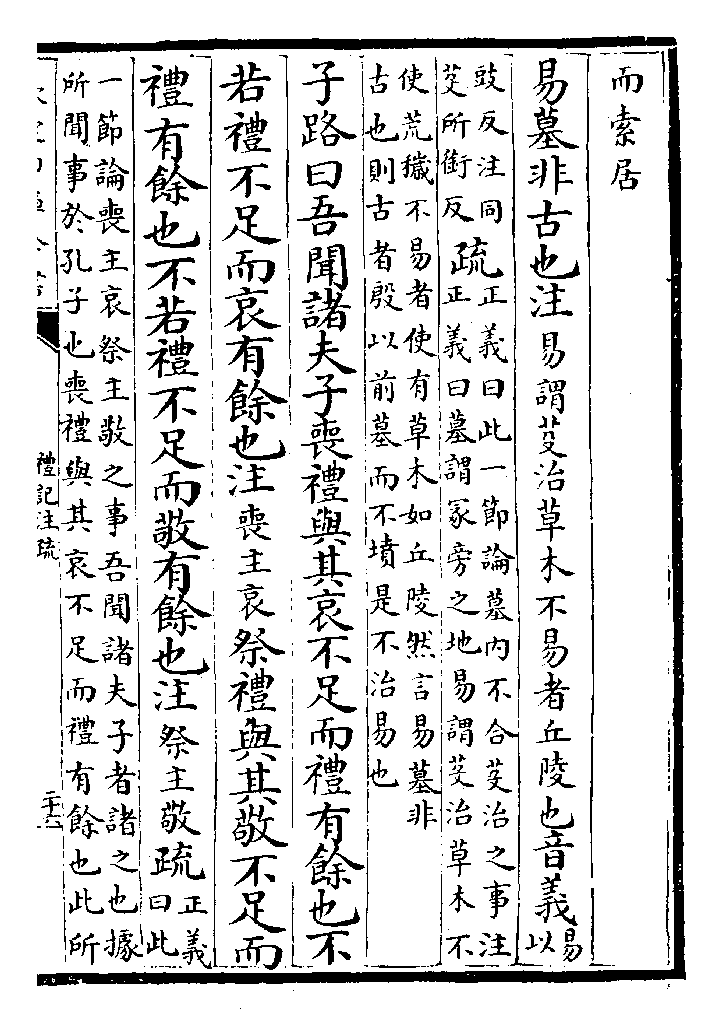 而索居
易墓非古也注易謂芟治草木不易者丘陵也音義易以
豉反注同
芟所銜反
疏
正義曰此一節論墓内不合芟治之事注
正義曰墓謂冢旁之地易謂芟治草木不
使荒穢不易者使有草木如丘陵然言易墓非
古也則古者殷以前墓而不墳是不治易也
子路曰吾聞諸夫子喪禮與其哀不足而禮有餘也不
若禮不足而哀有餘也注喪主哀祭禮與其敬不足而
禮有餘也不若禮不足而敬有餘也注祭主敬疏正義曰此
一節論喪主哀祭主敬之事吾聞諸夫子者諸之也據
所聞事於孔子也喪禮與其哀不足而禮有餘也此所
欽定四庫全書
禮記注疏
二十六